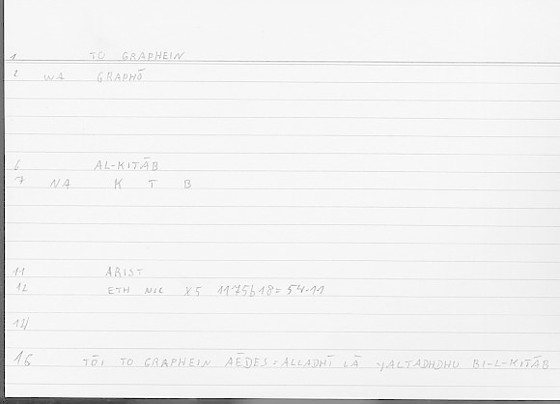 1 TO GRAPHEIN
2 WA GRAPHŌ
6 AL-KITĀB
7 NA K T B
11 ARIST
12 ETH NIC X5 1175b18= 54.11
16 TŌI TO GRAPHEIN AĒDES = ALLADHĪ LĀ YALTADHDHU BI-L-KITĀB